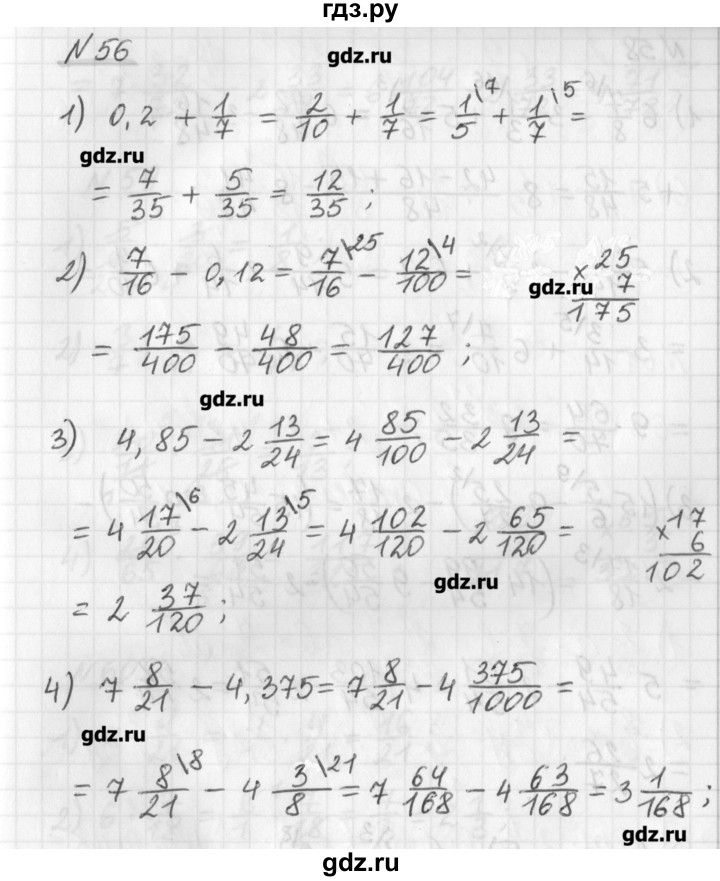 гдз.ру
N 56
gdz.ru
1) 0,2 + 1/7 = 2/10 + 1/7 = 1/5 \7 + 1/7 \5 =
gdz.ru
= 7/35 + 5/35 = 12/35 ;
2) 7/16 - 0,12 = 7/16 \25 - 12/100 \4 =
gdz.ru
× 25
7
175
= 175/400 - 48/400 = 127/400 ;
gdz.ru
3) 4,85 - 2 13/24 = 4 85/100 - 2 13/24 =
= 4 17/20 \6 - 2 13/24 \5 = 4 102/120 - 2 65/120 =
× 17
6
102
gdz.ru
= 2 37/120 ;
4) 7 8/21 - 4,375 = 7 8/21 - 4 375/1000 =
gdz.ru
= 7 8/21 \8 - 4 3/8 \21 = 7 64/168 - 4 63/168 = 3 1/168 ;
gdz.ru
gdz.ru